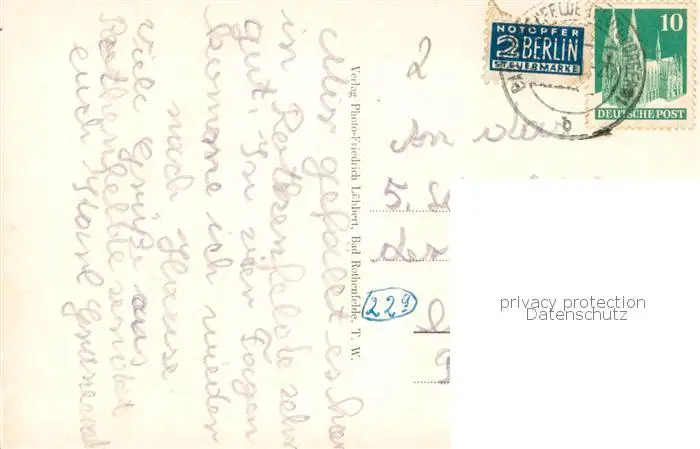 Mir gefällt es hier
in Rothenfelde sehr
gut. In vier Tagen
komme ich wieder
nach Hause.
Viele Grüße aus
Rothenfelde sendet
euch
Verlag Photo-Friedrich Lübbert, Bad Rothenfelde, T. W.
NOTOPFER
2 BERLIN
STEUERMARKE
10
DEUTSCHE POST
b
2
An die
5.
der
22a
privacy protection
Datenschutz